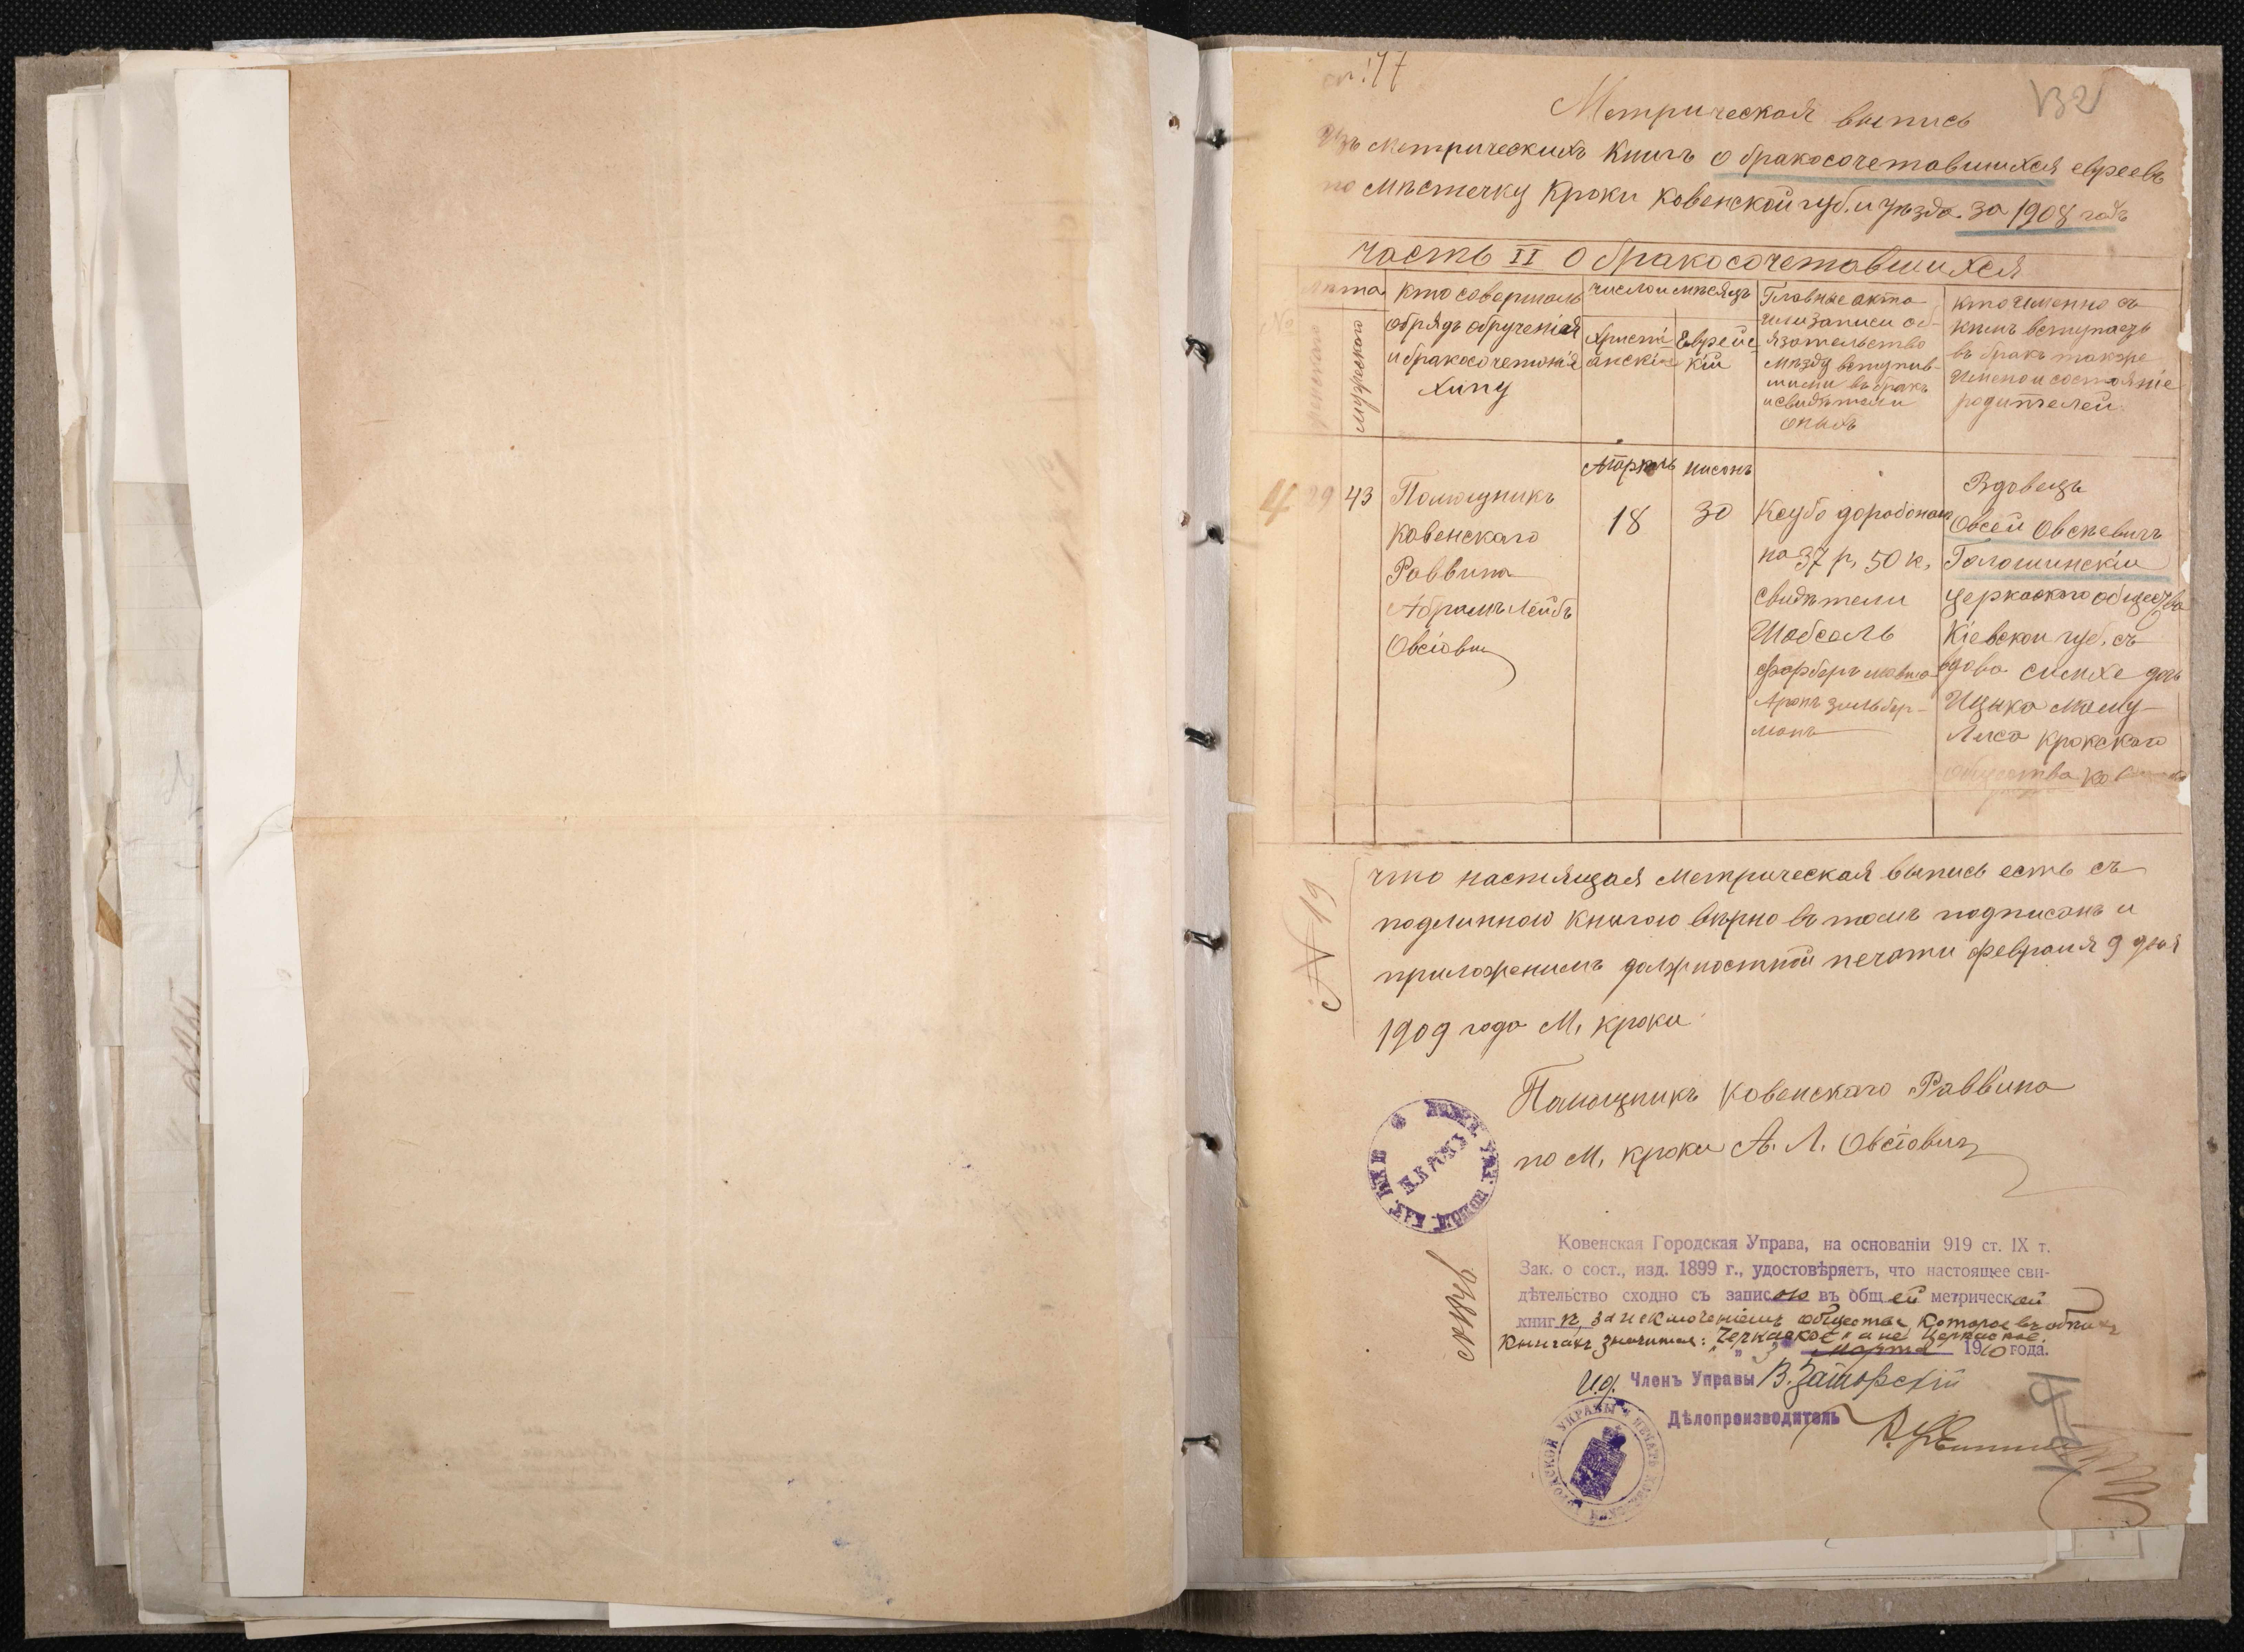 132
Метрическая выпись
Изъ метрическихъ книгъ о бракосочетавшихся евреевъ
по мѣстечку Кроки Ковенской губ. и уѣзда за 1908 годъ
Часть II о бракосочетавшихся
№
Лѣта
женскаго
мужского
кто совершалъ
обрядъ обрученія
и бракосочетанія
хипу
число и мѣсяцъ
Христі-
анскій
Еврейс-
кій
Главные акта
или записи об-
язательство
между вступив-
шими въ бракъ
и свидѣтели
оныхъ
кто именно съ
кимъ вступаетъ
въ бракъ также
имена и состояніе
родителей
4
29
43
Помощникъ
Ковенскаго
Раввина
Абрамъ Лейбъ
Овсіовичъ
Апрѣль
18
нисонъ
30
Ксубо дорабонамъ
на 37 р, 50 к,
свидѣтели
Шабсаль
Фарберъ
Аронъ Зильбер-
манъ
Вдовецъ
Овсей Овсѣевичъ
Галошинскій
Церкаскаго общества
Кіевской губ, съ
вдова Симхе дочь
Ицыка
Крокскаго
общества
что настящая метрическая выпись есть съ
подлинною книгою вѣрно въ томъ подписомъ и
приложенимъ должностной печати февраля 9 дня
1909 года М, Кроки
№ 19
Помощникъ Ковенскаго Раввина
по М, Кроки А. Л. Овсіовичъ
Ковенская Городская Управа, на основаніи 919 ст. IX т.
Зак. о сост., изд. 1899 г., удостовѣряетъ, что настоящее сви-
дѣтельство сходно съ записью въ общей метрической
книгѣ, за исключеніемъ общества, которое въ
книгахъ значится: "Черкаское" а не Церкаское.
марта 1910 года.
И.д. Членъ Управы В. Заторскій
Дѣлопроизводитель